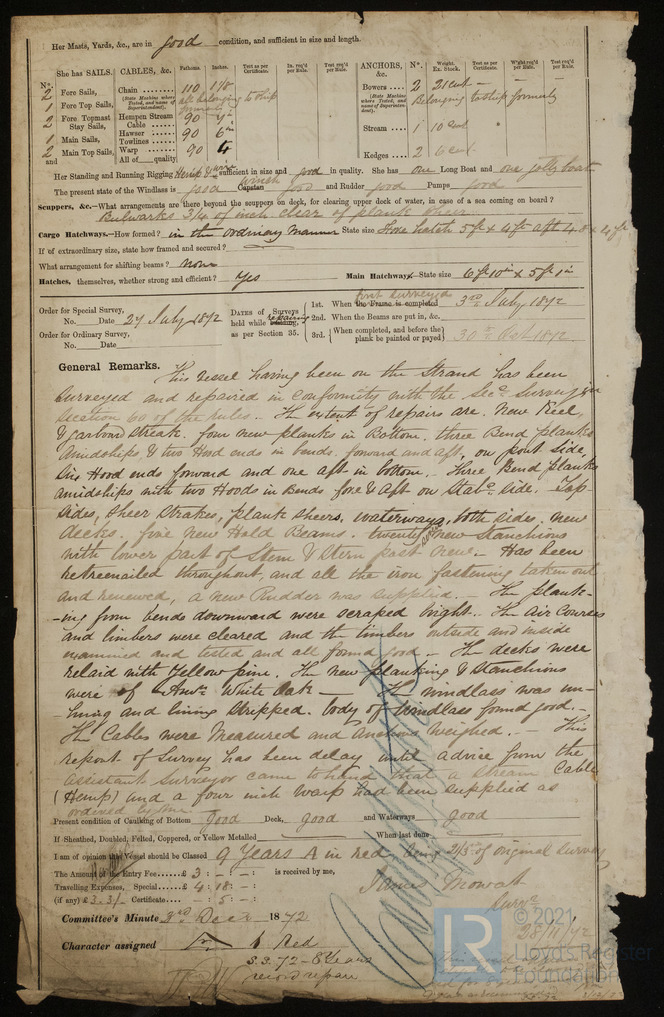 Her Masts, Yards, &c., are in good condition, and sufficient in size and length.
She has SAILS. CABLES, &c. Fathoms. Inches. Test as per Certificate. In. req'd per Rule. Test req'd per Rule. ANCHORS, &c. No. Weight. Ex. Stock. Test as per Certificate. Weight req'd per Rule. Test req'd per Rule.
No.
2 Fore Sails, Chain 110 1 1/8 Bowers 2 21 cwt
1 Fore Top Sails, (State Machine where Tested, and name of Superintendent). all belonging to ship formerly (State Machine where Tested, and name of Superintendent). Belonging to ship formerly
2 Fore Topmast Stay Sails, Hempen Stream Cable 90
Hawser 90 6 Stream 1 10 cwt
1 Main Sails, Towlines
2 Main Top Sails, Warp 90 4 Kedges 2 6 cwt
and All of quality
Her Standing and Running Rigging Hemp & wire sufficient in size and good in quality. She has one Long Boat and one jolly boat
The present state of the Windlass is good Capstan winch good and Rudder good Pumps good
Scuppers, &c.—What arrangements are there beyond the scuppers on deck, for clearing upper deck of water, in case of a sea coming on board?
Bulwarks 3/4 of inch clear of plank sheer
Cargo Hatchways.—How formed? in the ordinary manner State size Fore hatch 5 ft x 4 ft aft 4.8 x 4 ft
If of extraordinary size, state how framed and secured?
What arrangement for shifting beams? None
Hatches, themselves, whether strong and efficient? Yes Main Hatchways.—State size 6 ft 10 in x 5 ft 1 in
Order for Special Survey, No. Date 27 July 1872
Order for Ordinary Survey, No. Date
DATES of Surveys held while repairing building, as per Section 35.
1st. When the Frame is completed first surveyed 3rd July 1872
2nd. When the Beams are put in, &c.
3rd. When completed, and before the plank be painted or payed 30th Oct 1872
General Remarks. This vessel having been on the Strand has been
surveyed and repaired in conformity with the Sec. Survey in
Section 60 of the rules. The extent of repairs are. New Keel,
& garboard streak. four new planks in Bottom. three Bend planks
Amidships & two Hood ends in bends. forward and aft, on port side,
Six Hood ends forward and one aft in bottom. Three Bend planks
amidships with two Hoods in Bends fore & Aft on Stabd. side. Top
Sides, Sheer Strakes, plank sheers, waterways, both sides, new
decks. five new Hold Beams. twenty new Stanchions
with lower part of Stem & Stern post new. Has been
retreenailed throughout, and all the iron fastening taken out
and renewed, a new Rudder was supplied. The plank-
-ing from bends downward were scraped bright. The Air Courses
and limbers were cleared and the timbers outside and inside
examined and tested and all found good. The decks were
relaid with Yellow pine. The new planking & Stanchions
were of Amn. White Oak The windlass was un-
-hung and lining stripped. body of windlass found good.
The Cables were Measured and Anchors Weighed. This
report of Survey has been delay until advice from the
Assistant Surveyor came to hand that a stream Cable
(Hemp) and a four inch Warp had been supplied as
ordered by me
Present condition of Caulking of Bottom good Deck, good and Waterways good
If Sheathed, Doubled, Felted, Coppered, or Yellow Metalled When last done
I am of opinion this Vessel should be Classed 9 Years A in red, being 2/3 of original survey
The Amount of the Entry Fee £ 3 : - : - is received by me,
Travelling Expenses, Special £ 4 : 18 : -
(if any) £ 3.3/- Certificate - : 5 : -
James Mowat
Survr.
28/11/72
Committee's Minute 3rd Decr 1872
Character assigned Red
S.3.72-8 Years
record repair
LR © 2021
Lloyd's Register
Foundation